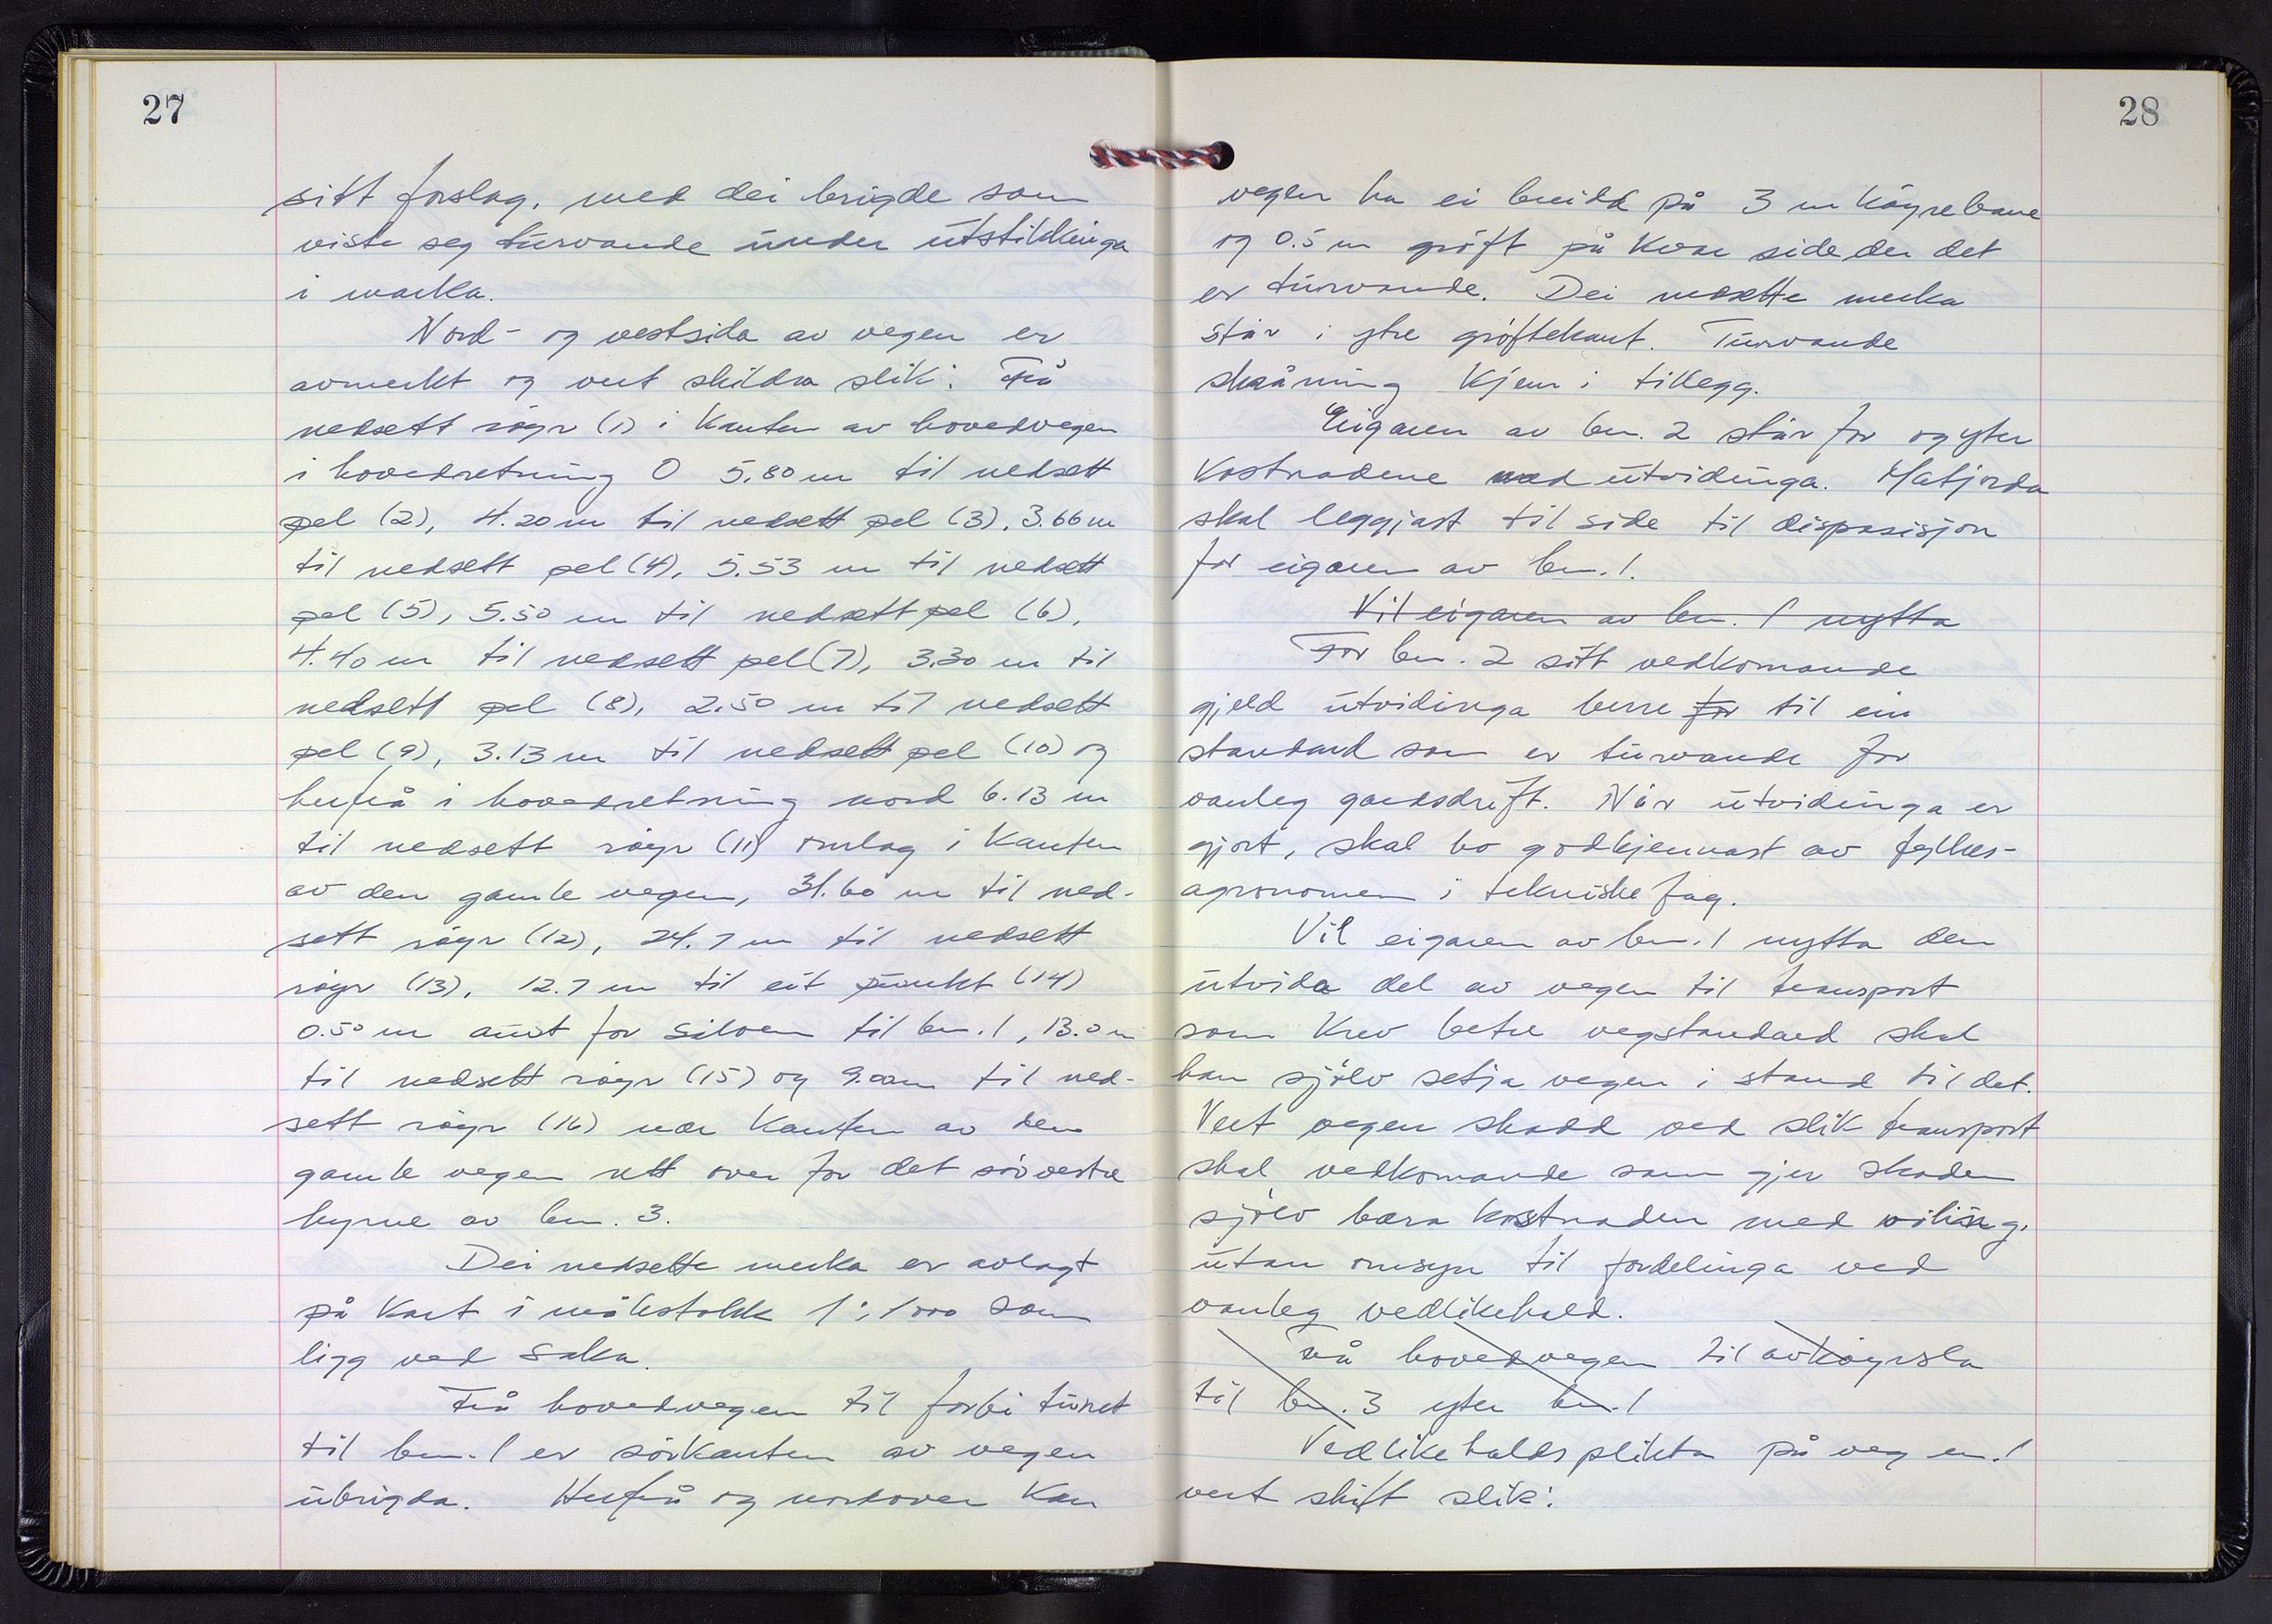 27
sitt forslag, med dei brigde som
viste seg turvande under utstikkinga
i marka.
Nord- og vestsida av vegen er
avmerkt og vert skildra slik: Frå
nedsett röyr (1) i kanten av hovedvegen
i hovedretning O 5.80 m til nedsett
pel (2), 4.20 m til nedsett pel (3), 3.66 m
til nedsett pel (4), 5.53 m til nedsett
pel (5), 5.50 m til nedsett pel (6),
4.40 m til nedsett pel (7), 3.30 m til
nedsett pel (8), 2.50 m til nedsett
pel (9), 3.13 m til nedsett pel (10) og
herfrå i hovedretning nord 6.13 m
til nedsett röyr (11) omlag i kanten
av den gamle vegen, 31.60 m til ned-
sett röyr (12), 24.7 m til nedsett
röyr (13), 12.7 m til eit punkt (14)
0.50 m aust for siloen til bn. 1, 13.0 m
til nedsett röyr (15) og 9.00 m til ned-
sett röyr (16) nær kanten av den
gamle vegen rett over for det sörvestre
hyrne av bn. 3.
Dei nedsette merka er avlagt
på kart i målestokk 1:1000 som
ligg ved saka.
Frå hovedvegen til forbi tunet
til bn. 1 er sörkanten av vegen
ubrigda. Herfrå og nordover kan
28
vegen ha ei breidd på 3 m köyrebane
og 0.5 m gröft på kvar side der det
er turvande. Dei nedsette merka
står i ytre gröftekant. Turvande
skråning kjem i tillegg.
Eigaren av bn. 2 står for og yter
kostnadene med utvidinga. Matjorda
skal leggjast til side til disposisjon
for eigaren av bn. 1.
Vil eigaren av bn. 1 nytta
For bn. 2 sitt vedkomande
gjeld utvidinga berre for til ein
standard som er turvande for
vanleg gardsdrift. Når utvidinga er
gjort, skal ho godkjennast av fylkes-
agronomen i tekniske fag.
Vil eigaren av bn. 1 nytta den
utvida del av vegen til transport
som krev betre vegstandard skal
han sjölv setja vegen i stand til det.
Vert vegen skadd ved slik transport
skal vedkomande som gjer skaden
sjölv bæra kostnaden med völing,
utan omsyn til fordelinga ved
vanleg vedlikehald.
Frå hovedvegen til avköyrsla
til bn. 3 yter bn. 1
Vedlikehaldsplikta på veg nr. 1
vert skift slik: